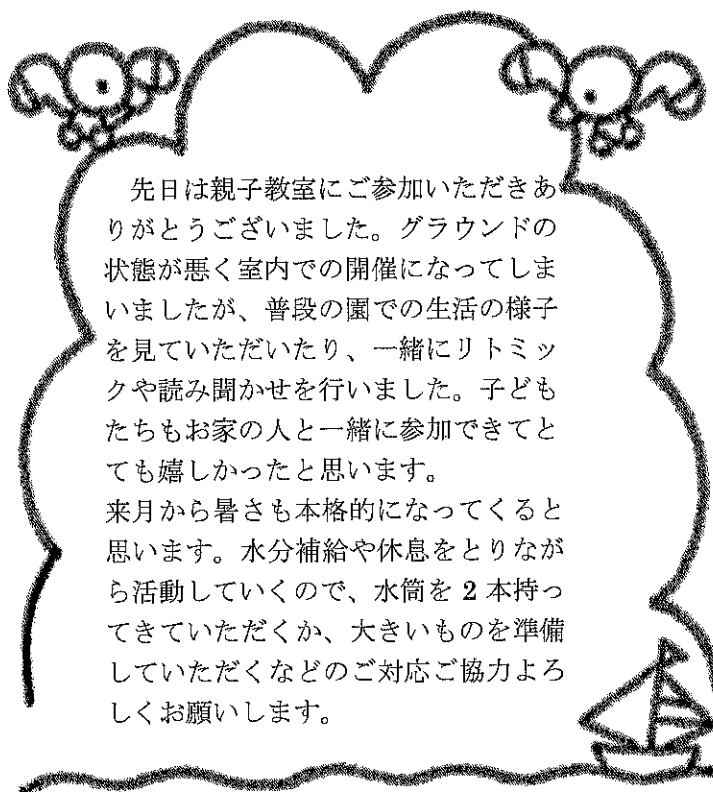 先日は親子教室にご参加いただきあ
りがとうございました。グラウンドの
状態が悪く室内での開催になってしま
いましたが、普段の園での生活の様子
を見ていただいたり、一緒にリトミッ
クや読み聞かせを行いました。子ども
たちもお家の人と一緒に参加できてと
ても嬉しかったと思います。
来月から暑さも本格的になってくると
思います。水分補給や休息をとりなが
ら活動していくので、水筒を 2 本持っ
てきていただくか、大きいものを準備
していただくなどのご対応ご協力よろ
しくお願いします。